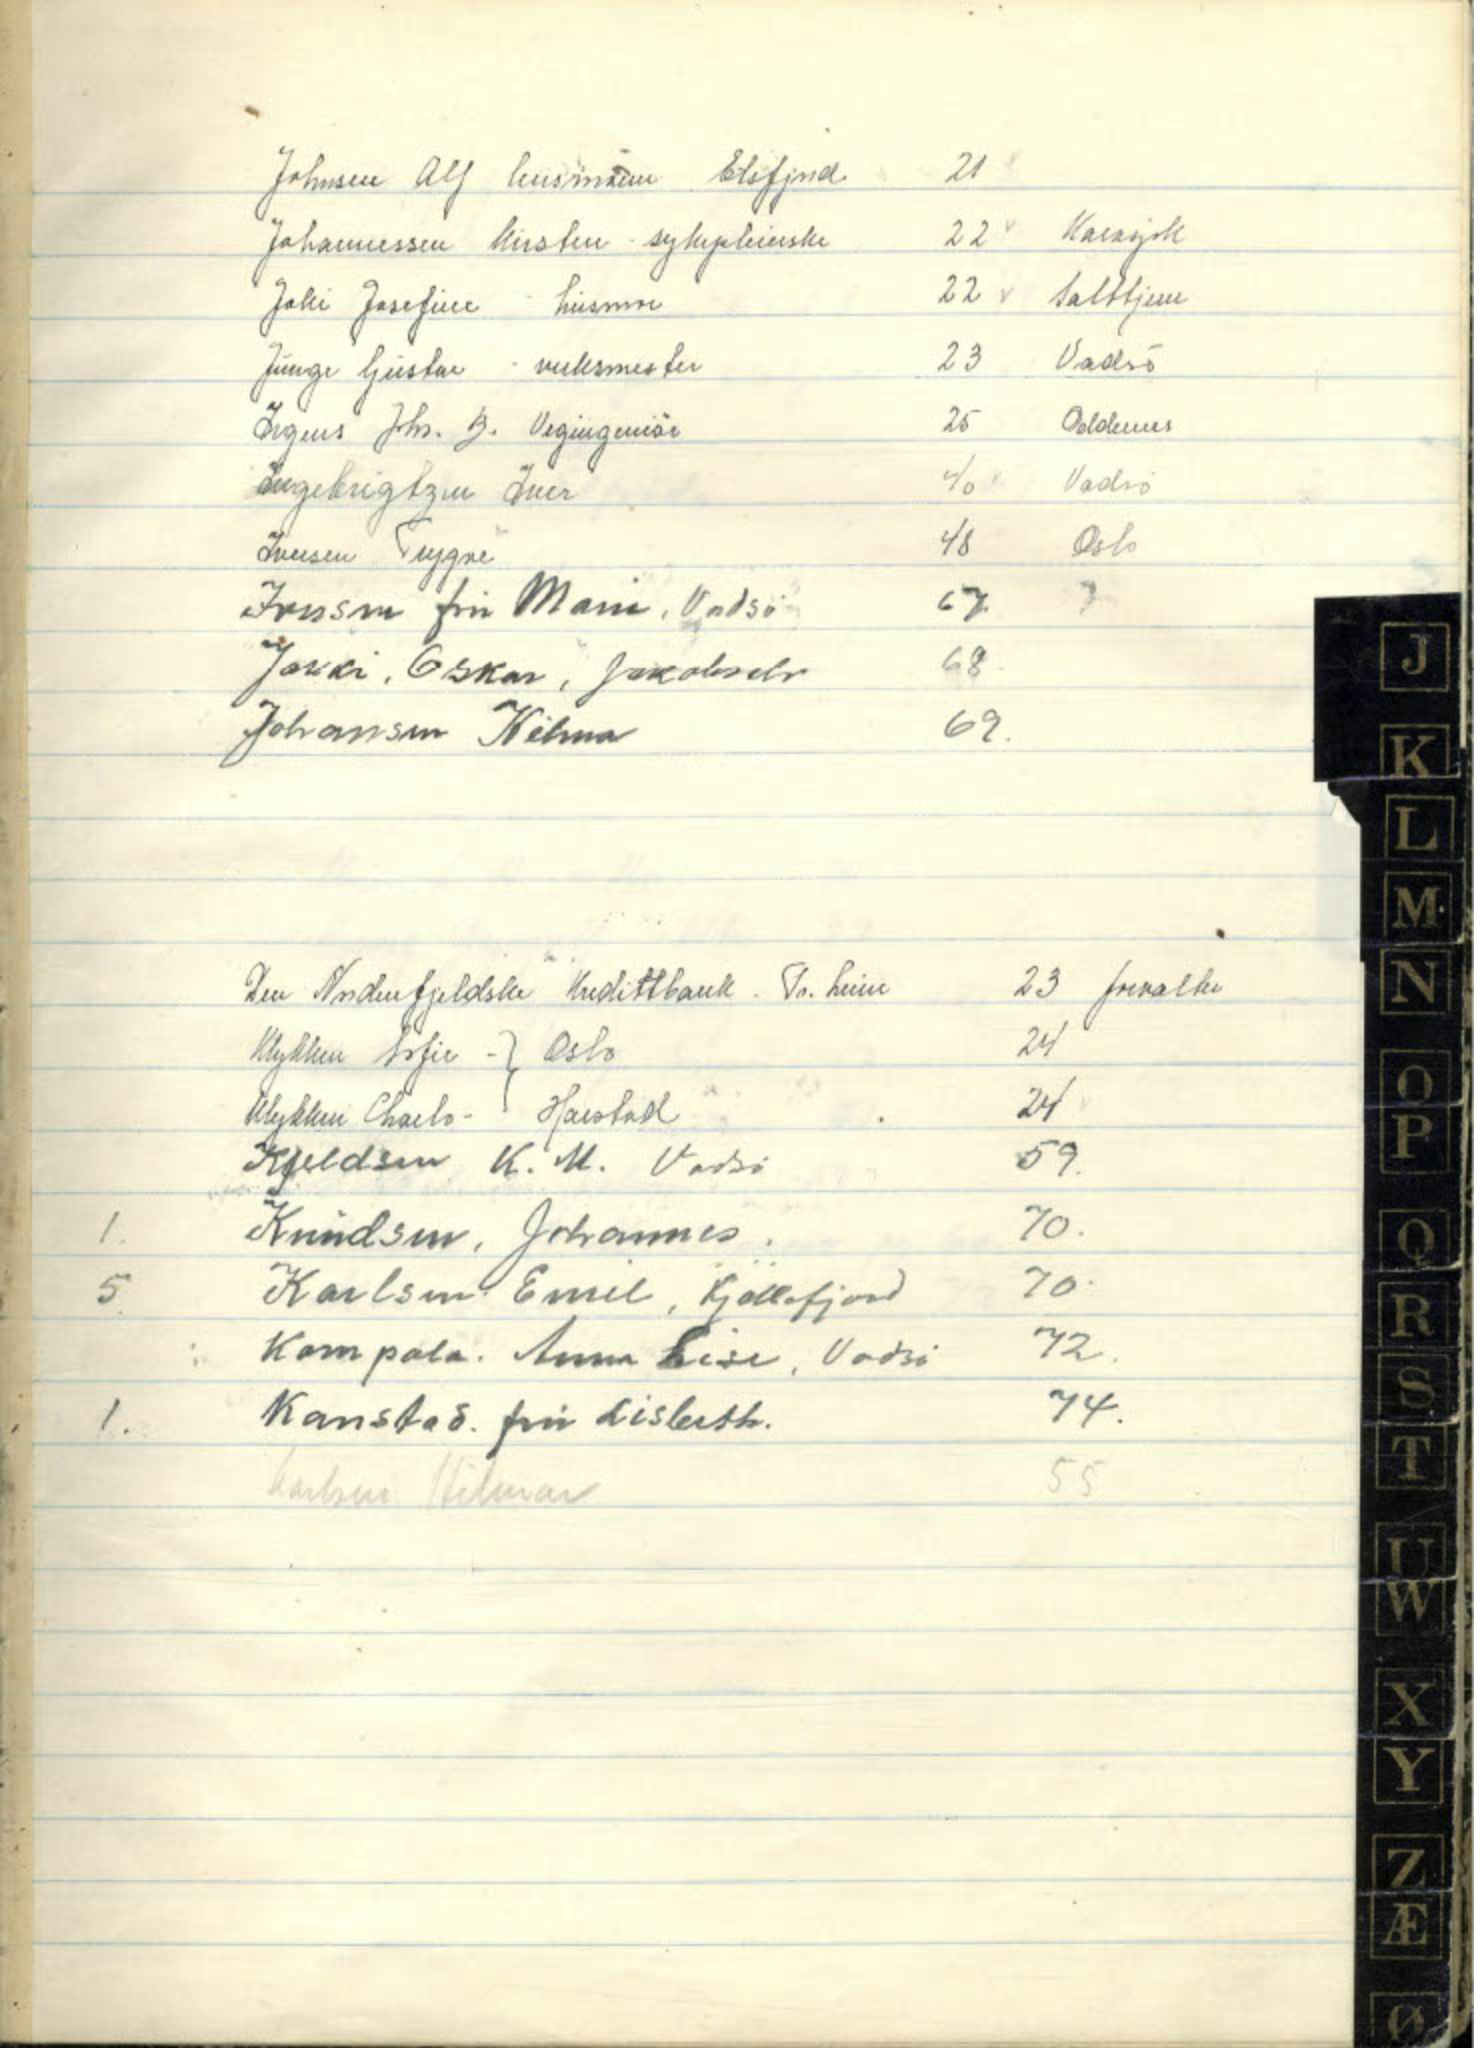 Johnsen Alf husmann Elsfjord 21
Johannessen Kirsten - sykepleierske 22 v Karasjok
Joki Josefine - husmor 22 v Salttjern
Junge Gustav - verksmester 23 Vadsö
Irgens Joh. B. Vegingeniör 25 Oddernes
Ingebrigtzen Iver 40 Vadsö
Iversen Trygve 48 Oslo
Iversen fru Marie, Vadsö 67
Jokki, Oskar, Jakobselv 68
Johansen Hilma 69.
Den Nordenfjeldske Kredittbank. Tr.heim 23 forvalte
Klykken Sofie - } Oslo 24
Klykken Charls - } Harstad 24
Kjeldsen K. M. Vadsö 59.
1. Knudsen, Johannes. 70.
5. Karlsen Emil, Kjöllefjord 70.
Kompola. Anna Lise, Vadsö 72.
1. Kanstad. fru Lisbeth. 74.
Karlsen Hilmar 55
J
K
L
M
N
O
P
Q
R
S
T
U
W
X
Y
Z
Æ
Ø